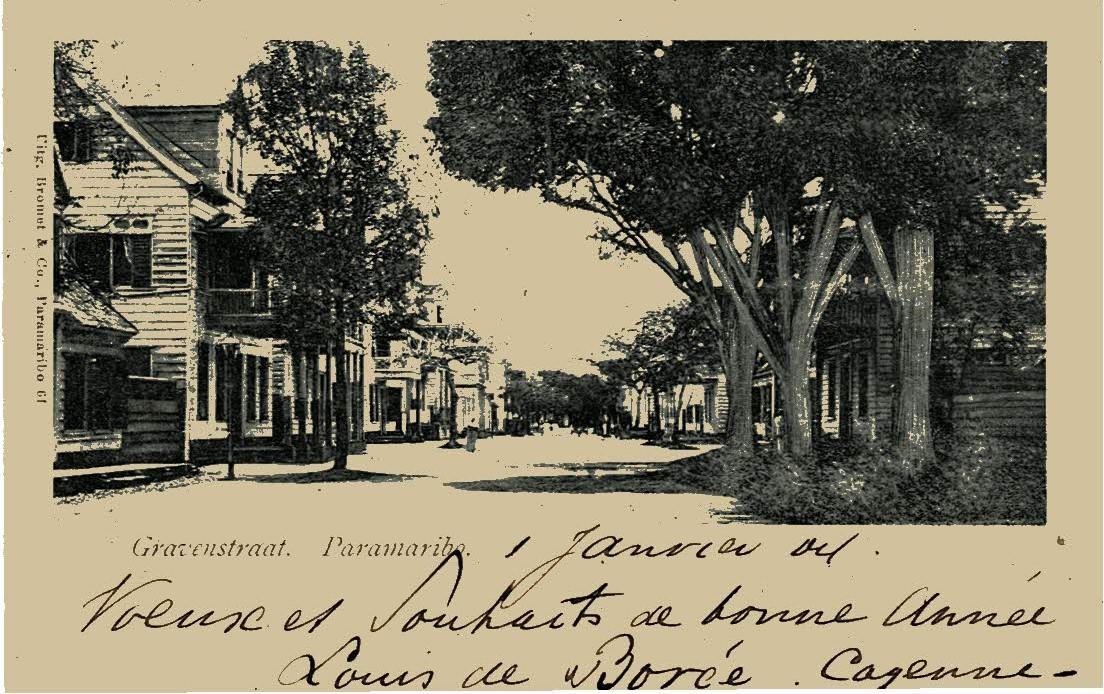 Uitg. Bromet & Co., Paramaribo 61
Gravenstraat. Paramaribo. 1 Janvier 04.
Voeux et Souhaits de bonne Année
Louis de Borée. Cayenne-